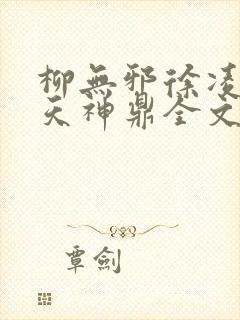 柳無邪徐凌
天神鼎全文
覃劍